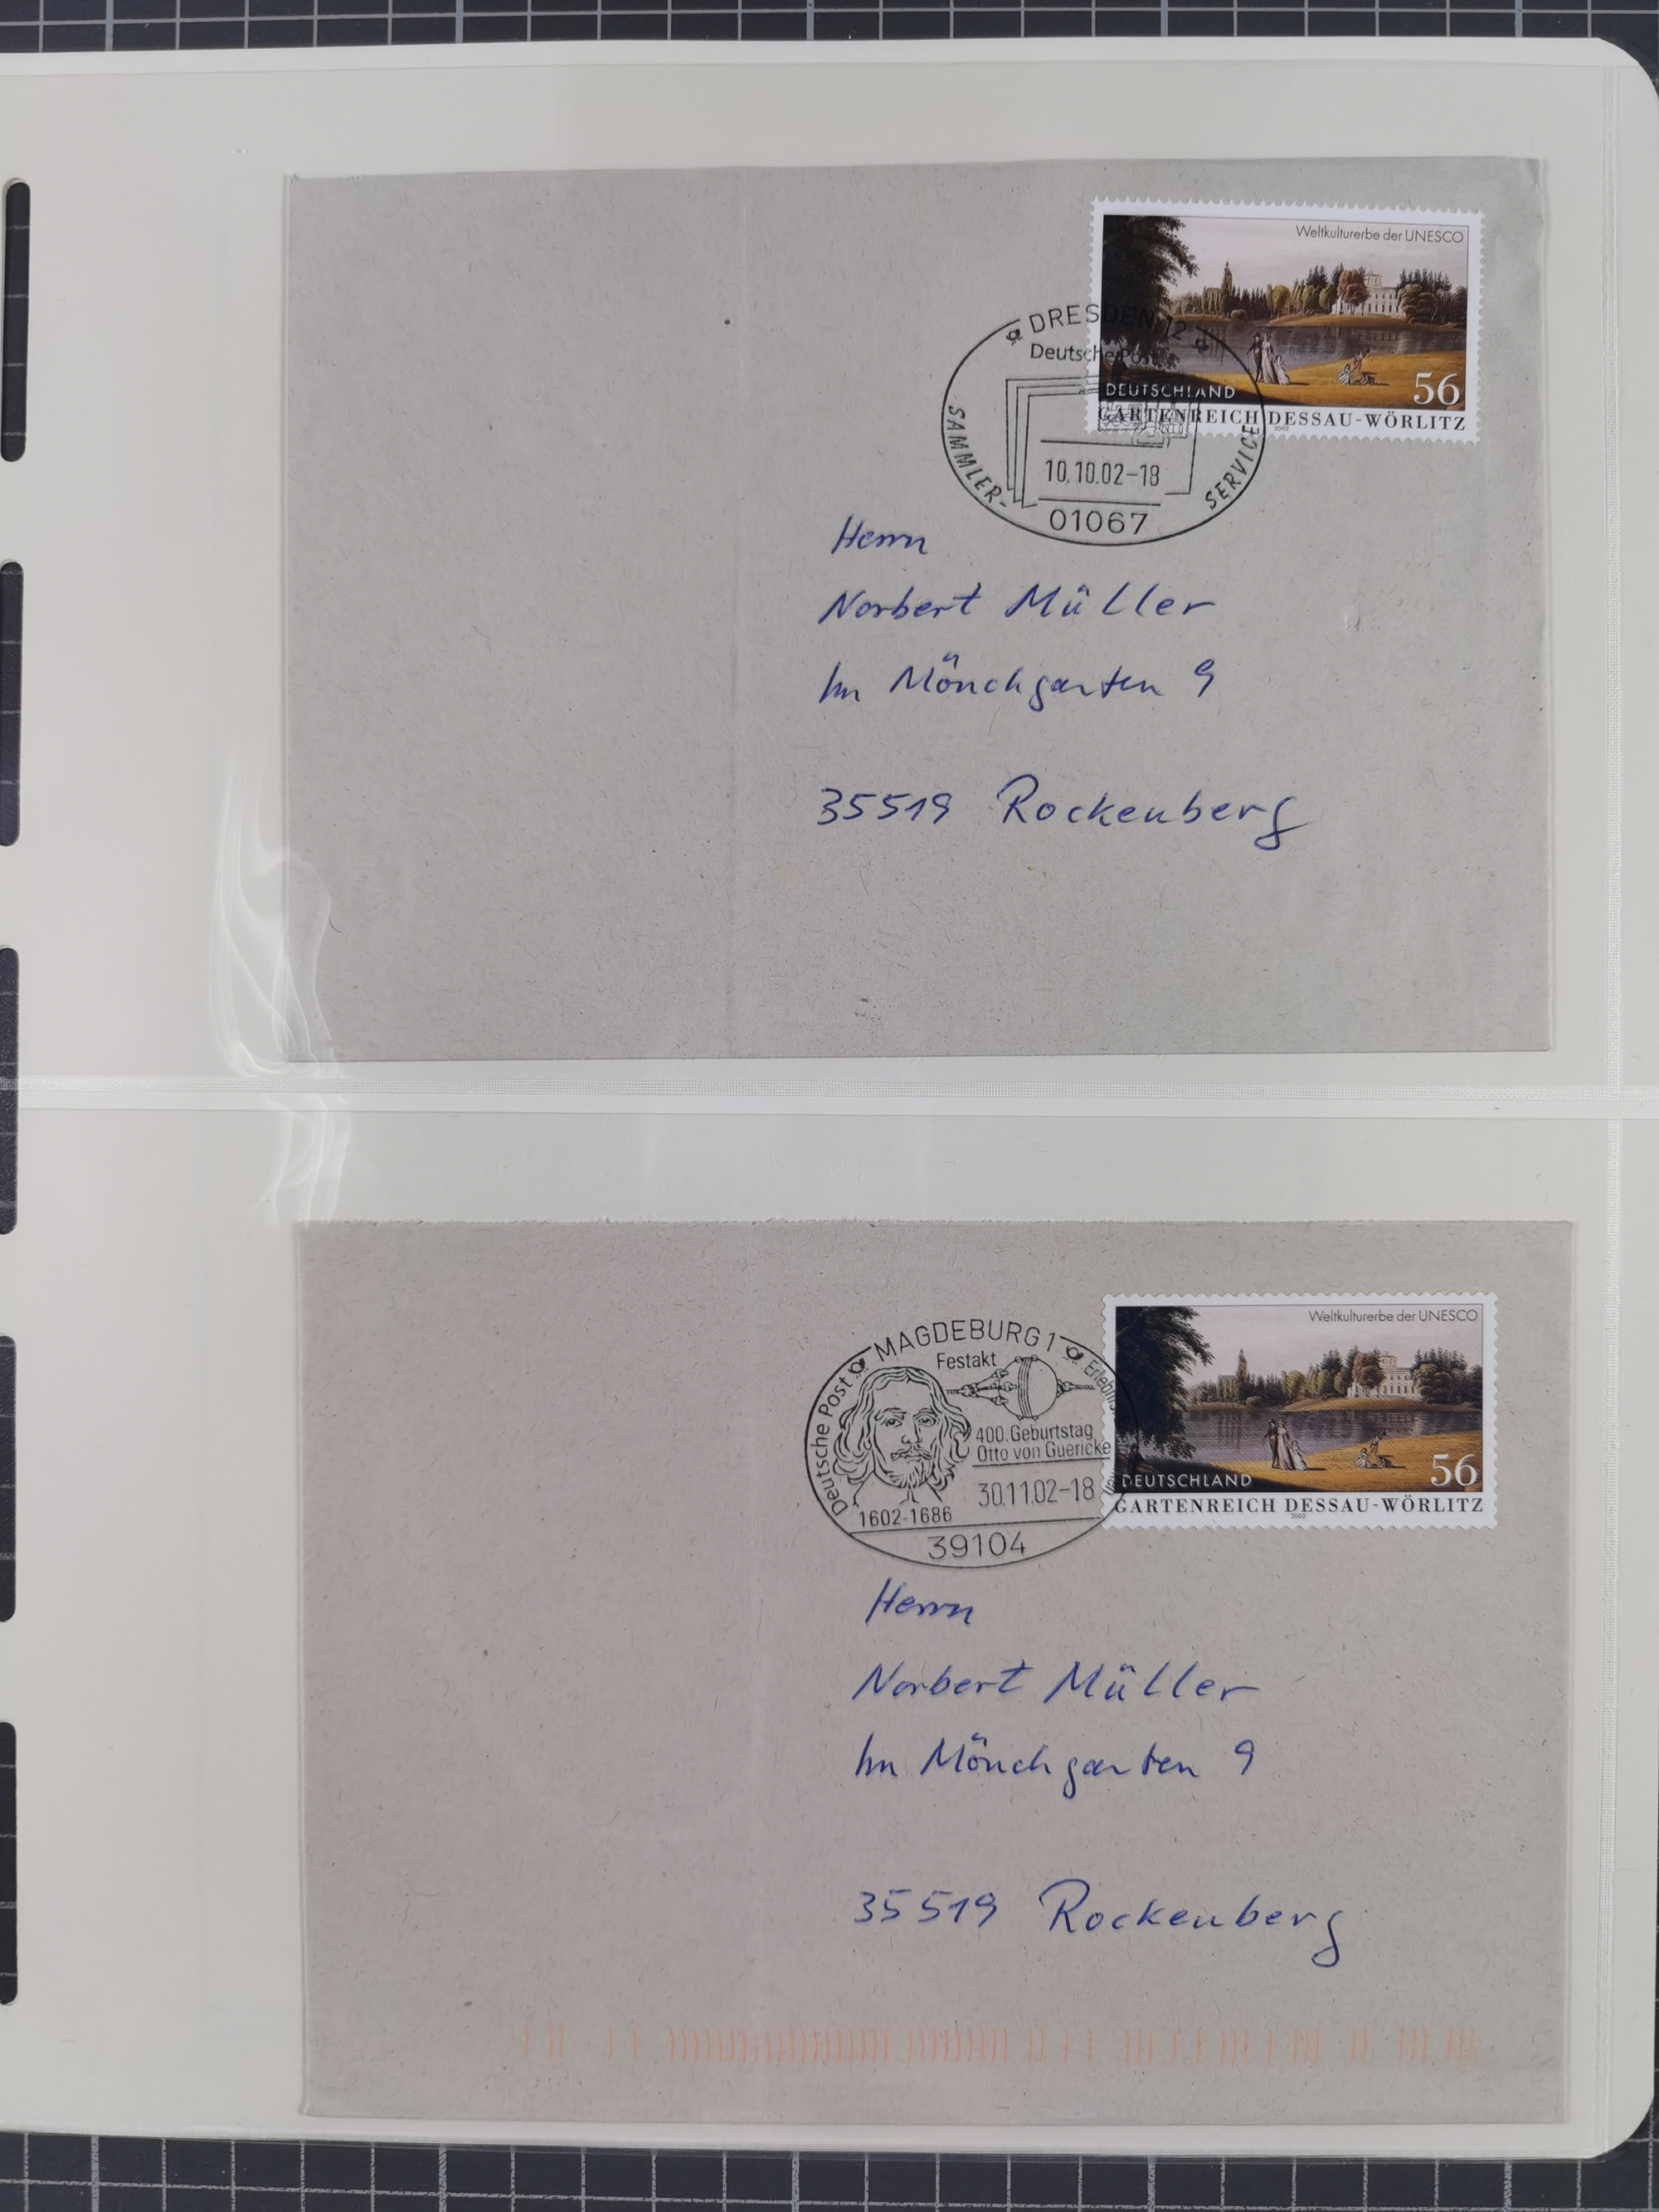 Weltkulturerbe der UNESCO
DEUTSCHLAND
56
GARTENREICH DESSAU-WÖRLITZ
2002
DRESDEN 12
Deutsche Post
SAMMLER-
SERVICE
10.10.02-18
01067
Herrn
Norbert Müller
Im Mönchgarten 9
35519 Rockenberg
Weltkulturerbe der UNESCO
DEUTSCHLAND
56
GARTENREICH DESSAU-WÖRLITZ
2002
MAGDEBURG 1
Deutsche Post
Festakt
400. Geburtstag
Otto von Guericke
30.11.02-18
1602-1686
39104
Herrn
Norbert Müller
Im Mönchgarten 9
35519 Rockenberg